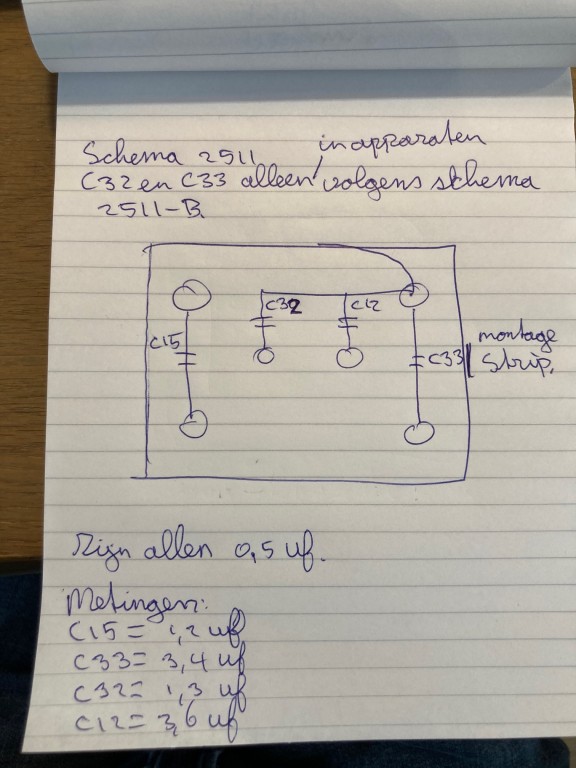 Schema 2511
in apparaten
C32 en C33 alleen volgens schema
2511-B
C32
C12
C15
C33
montage
strip.
Zijn allen 0,5 uf.
Metingen:
C15 = 1,2 uf
C33 = 3,4 uf
C32 = 1,3 uf
C12 = 3,6 uf